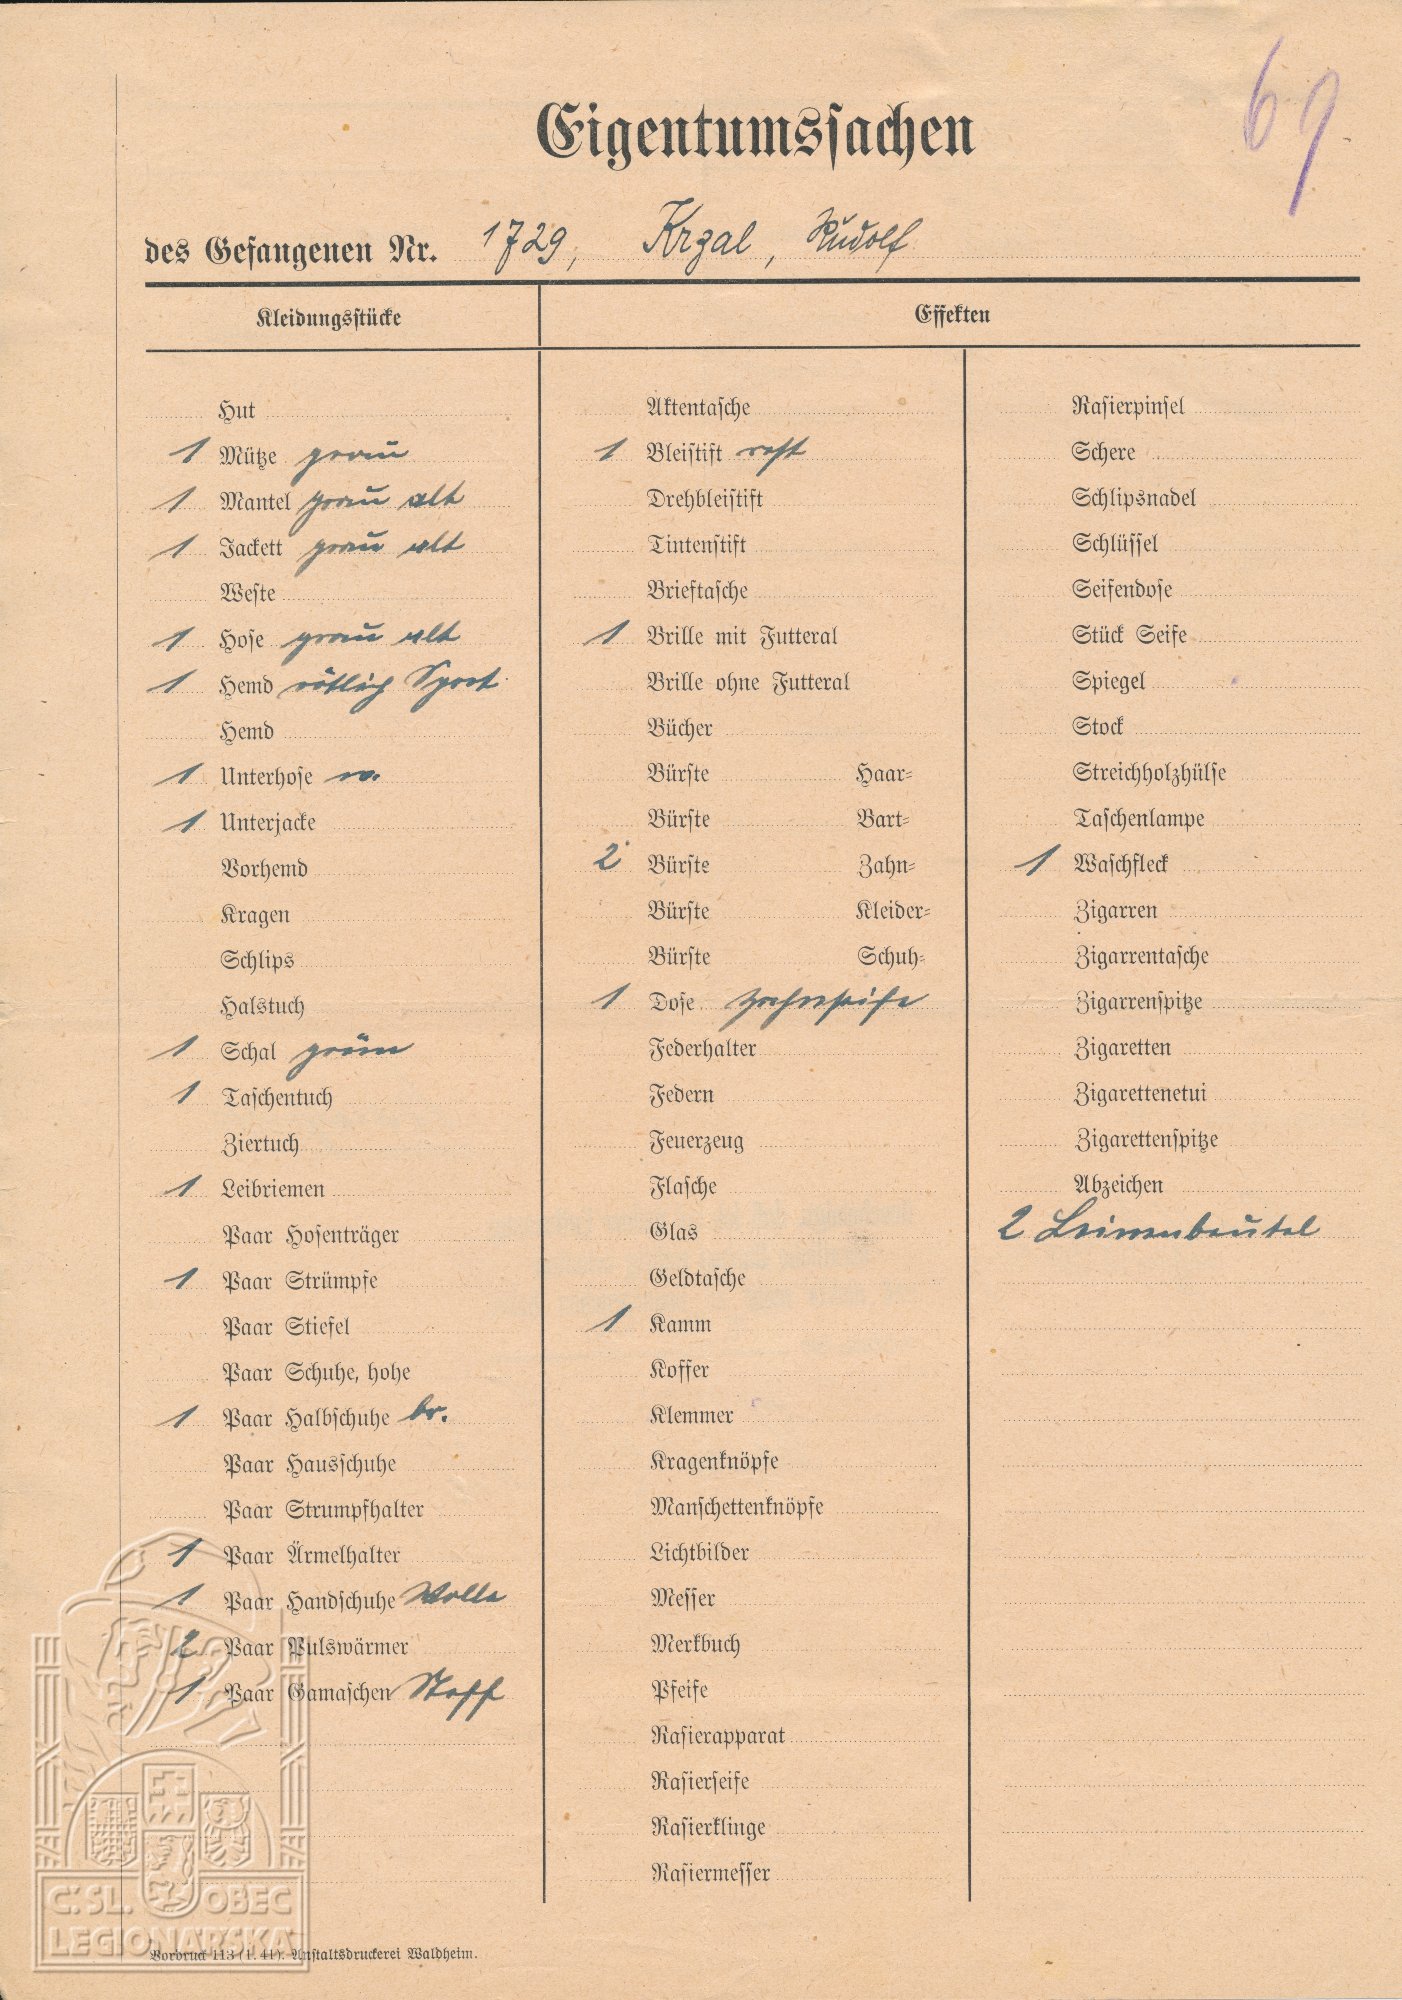 69
Eigentumssachen
des Gefangenen Nr. 1729, Krzal, Rudolf
Kleidungsstücke
Hut
1 Mütze grau
1 Mantel grau alt
1 Jackett grau alt
Weste
1 Hose grau alt
1 Hemd rötlich Sport
Hemd
1 Unterhose w.
1 Unterjacke
Vorhemd
Kragen
Schlips
Halstuch
1 Schal grün
1 Taschentuch
Ziertuch
1 Leibriemen
Paar Hosenträger
1 Paar Strümpfe
Paar Stiefel
Paar Schuhe, hohe
1 Paar Halbschuhe br.
Paar Hausschuhe
Paar Strumpfhalter
1 Paar Ärmelhalter
1 Paar Handschuhe Wolle
2 Paar Pulswärmer
1 Paar Gamaschen Stoff
Effekten
Aktentasche
1 Bleistift rest
Drehbleistift
Tintenstift
Brieftasche
1 Brille mit Futteral
Brille ohne Futteral
Bücher
Bürste Haar-
Bürste Bart-
2 Bürste Zahn-
Bürste Kleider-
Bürste Schuh-
1 Dose Zahnseife
Federhalter
Federn
Feuerzeug
Flasche
Glas
Geldtasche
1 Kamm
Koffer
Klemmer
Kragenknöpfe
Manschettenknöpfe
Lichtbilder
Messer
Merkbuch
Pfeife
Rasierapparat
Rasierseife
Rasierklinge
Rasiermesser
Rasierpinsel
Schere
Schlipsnadel
Schlüssel
Seifendose
Stück Seife
Spiegel
Stock
Streichholzhülse
Taschenlampe
1 Waschfleck
Zigarren
Zigarrentasche
Zigarrenspitze
Zigaretten
Zigarettenetui
Zigarettenspitze
Abzeichen
2 Leinenbeutel
Č.SL. OBEC
LEGIONÁŘSKÁ
Vordruck 113 (1. 41). Anstaltsdruckerei Waldheim.